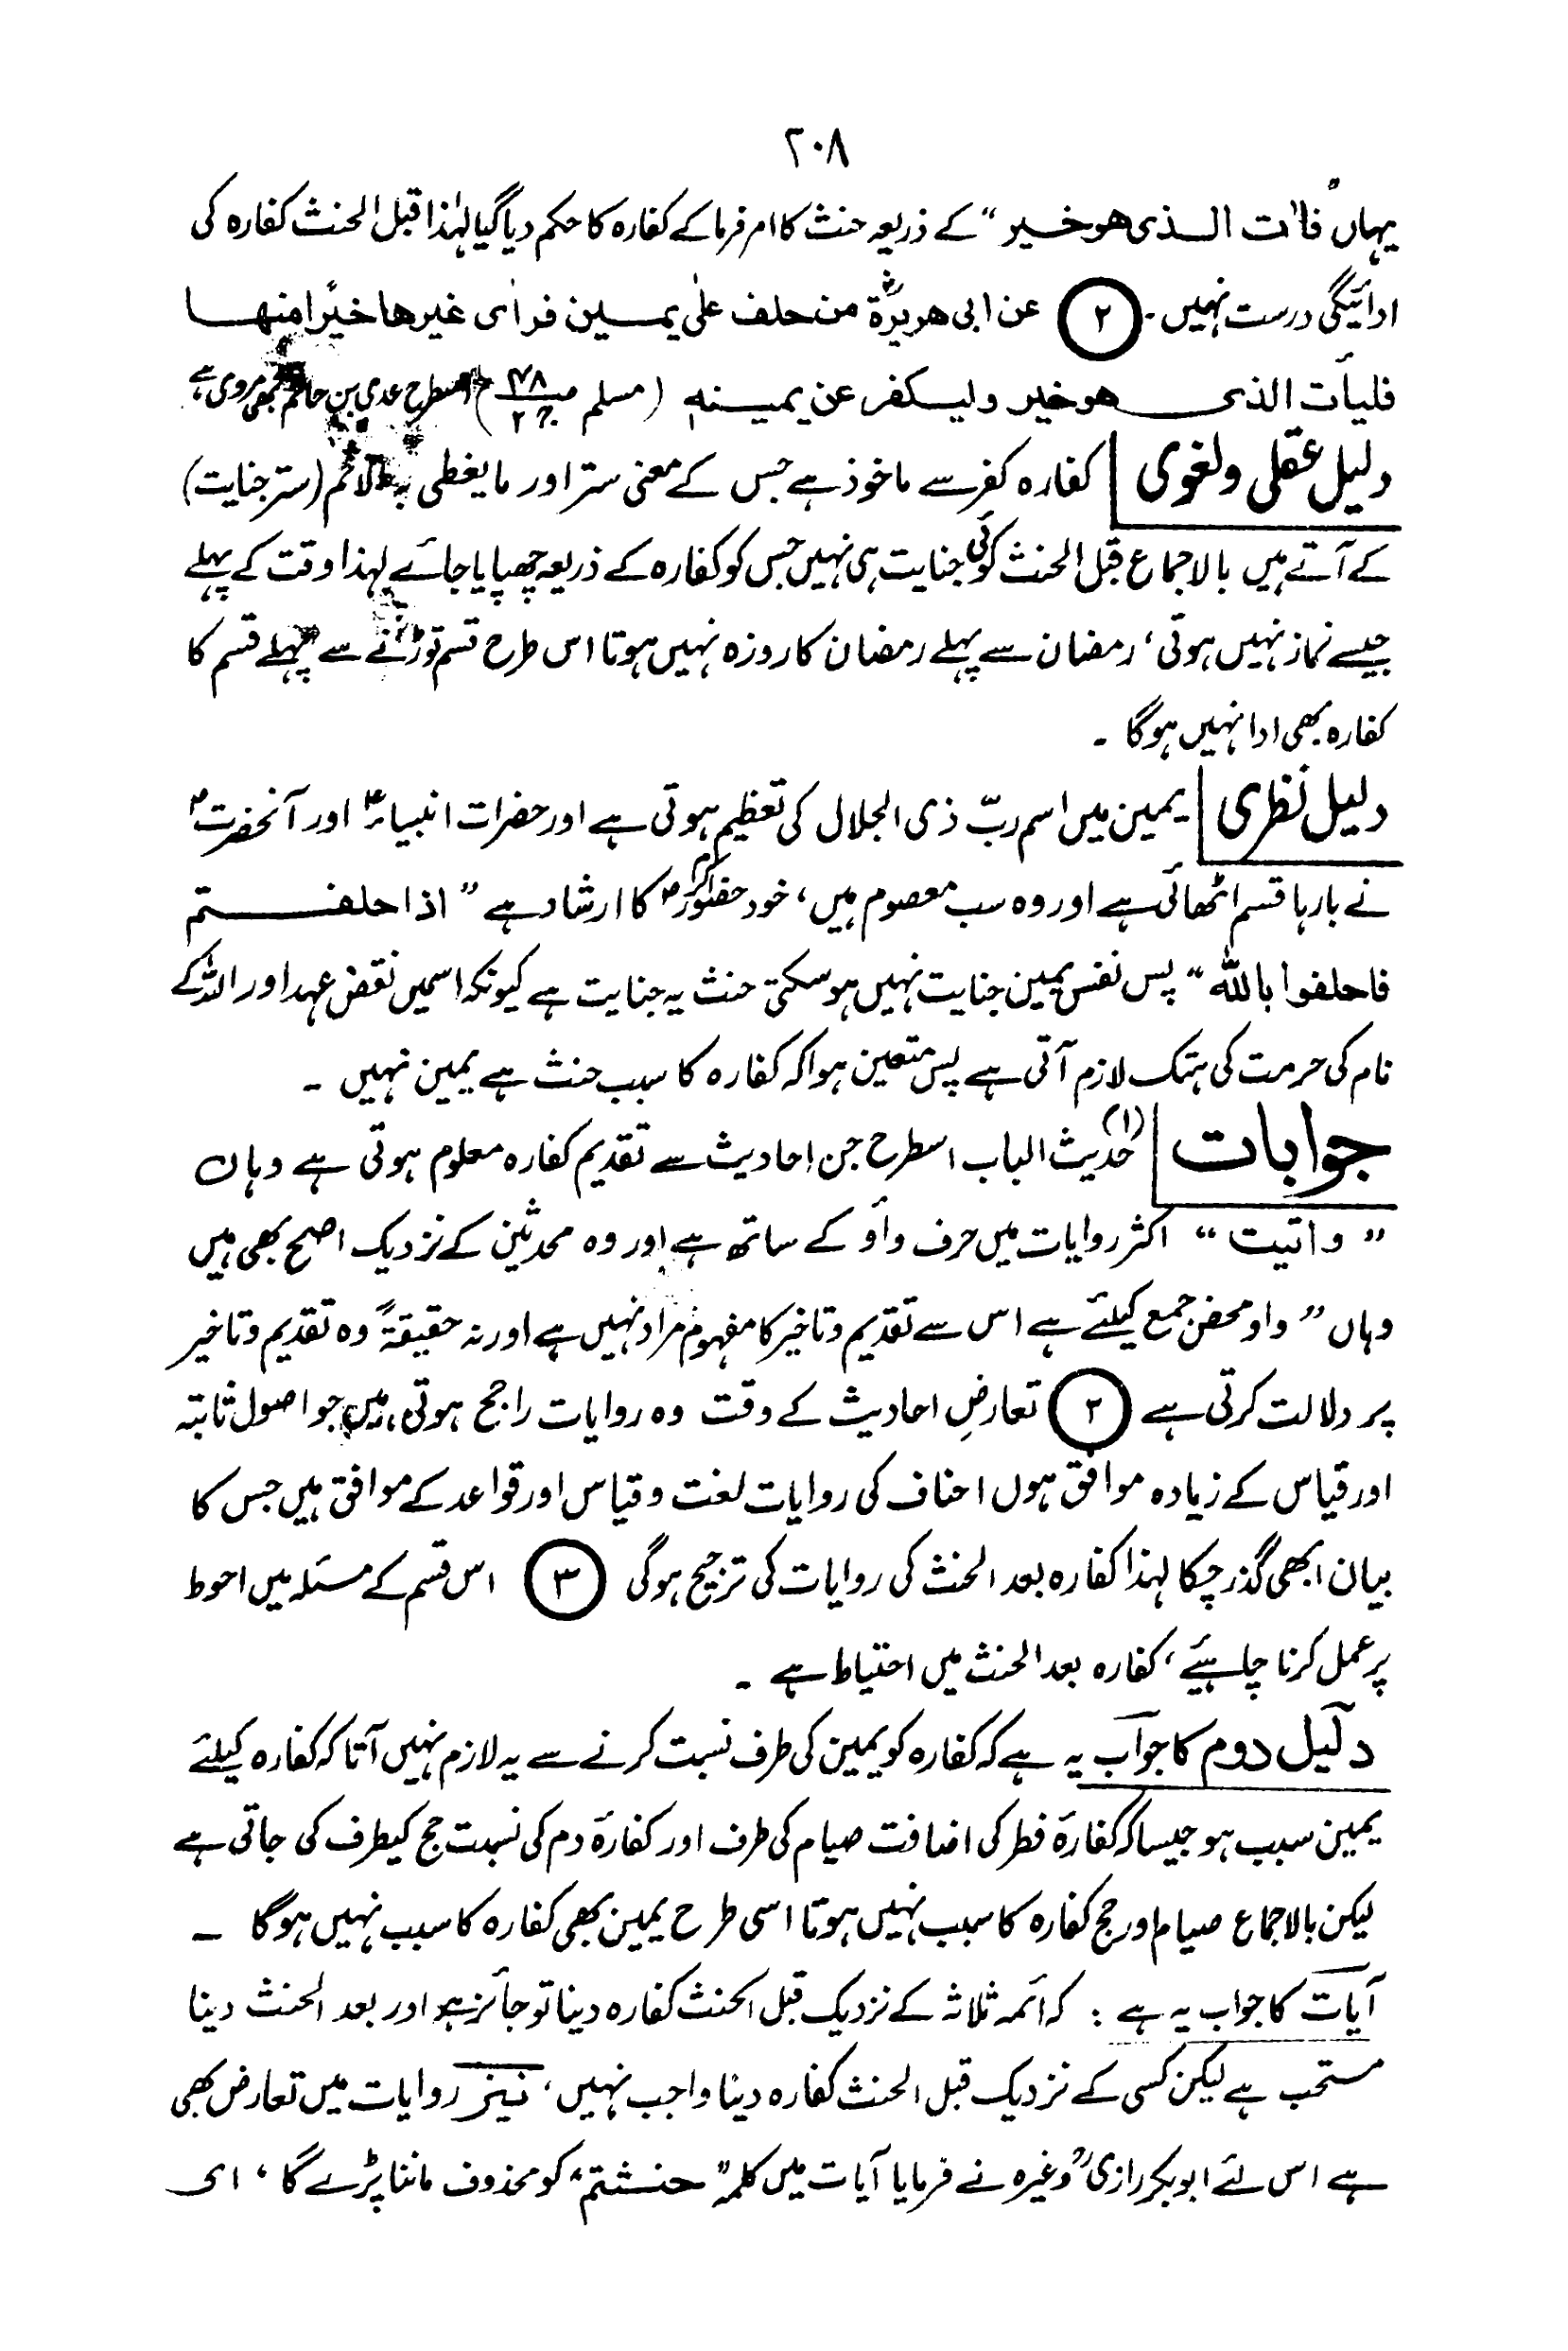 ۲۰۸
یہاں ”فأت الذی هو خیر“ کے ذریعہ حنث کا امر فرما کے کفارہ کا حکم دیا گیا لہٰذا قبل الحنث کفارہ کی
ادائیگی درست نہیں ۔ ② عن ابی هریرةؓ من حلف علٰی یمین فراٰی غیرها خیرًا منها
فلیأت الذی هو خیر ولیکفر عن یمینه (مسلم ص۴۸ ج۲) اسطرح عدی بن حاتم سے بھی مروی ہے
دلیل عقلی ولغوی | کفارہ کفر سے ماخوذ ہے جس کے معنی ستر اور ما یغطی به الاثم (ستر جنایت)
کے آتے ہیں بالاجماع قبل الحنث کوئی جنایت ہی نہیں جس کو کفارہ کے ذریعہ چھپایا جائے لہذا وقت کے پہلے
جیسے نماز نہیں ہوتی ، رمضان سے پہلے رمضان کا روزہ نہیں ہوتا اس طرح قسم توڑنے سے پہلے قسم کا
کفارہ بھی ادا نہیں ہوگا ۔
دلیل نظری | یمین میں اسم ربّ ذی الجلال کی تعظیم ہوتی ہے اور حضرات انبیاءؑ اور آنحضرتؐ
نے بارہا قسم اٹھائی ہے اور وہ سب معصوم ہیں ، خود حضور اکرمؐ کا ارشاد ہے ”اذا حلفتم
فاحلفوا باللہ“ پس نفس یمین جنایت نہیں ہوسکتی حنث یہ جنایت ہے کیونکہ اسمیں نقض عہد اور اللہ کے
نام کی حرمت کی ہتک لازم آتی ہے پس متعین ہوا کہ کفارہ کا سبب حنث ہے یمین نہیں ۔
جوابات | (۱) حدیث الباب اسطرح جن احادیث سے تقدیم کفارہ معلوم ہوتی ہے وہاں
”واتیت“ اکثر روایات میں حرف واؤ کے ساتھ ہے اور وہ محدثین کے نزدیک اصح بھی ہیں
وہاں ”واو محض جمع کیلئے ہے اس سے تقدیم وتاخیر کا مفہوم مراد نہیں ہے اور نہ حقیقۃً وہ تقدیم وتاخیر
پر دلالت کرتی ہے ② تعارضِ احادیث کے وقت وہ روایات راجح ہوتی ہیں جو اصول ثابتہ
اور قیاس کے زیادہ موافق ہوں احناف کی روایات لغت وقیاس اور قواعد کے موافق ہیں جس کا
بیان ابھی گذر چکا لہذا کفارہ بعد الحنث کی روایات کی ترجیح ہوگی ③ اس قسم کے مسئلہ میں احوط
پر عمل کرنا چاہئے ، کفارہ بعد الحنث میں احتیاط ہے ۔
دلیل دوم کا جواب یہ ہے کہ کفارہ کو یمین کی طرف نسبت کرنے سے یہ لازم نہیں آتا کہ کفارہ کیلئے
یمین سبب ہو جیسا کہ کفارۂ فطر کی اضافت صیام کی طرف اور کفارۂ دم کی نسبت حج کیطرف کی جاتی ہے
لیکن بالاجماع صیام اور حج کفارہ کا سبب نہیں ہوتا اسی طرح یمین بھی کفارہ کا سبب نہیں ہوگا ۔
آیات کا جواب یہ ہے : کہ ائمہ ثلاثہ کے نزدیک قبل الحنث کفارہ دینا تو جائز ہے اور بعد الحنث دینا
مستحب ہے لیکن کسی کے نزدیک قبل الحنث کفارہ دینا واجب نہیں ، نیز روایات میں تعارض بھی
ہے اس لئے ابوبکر رازیؒ وغیرہ نے فرمایا آیات میں کلمہ ”حنثتم“ کو محذوف ماننا پڑے گا ، ای